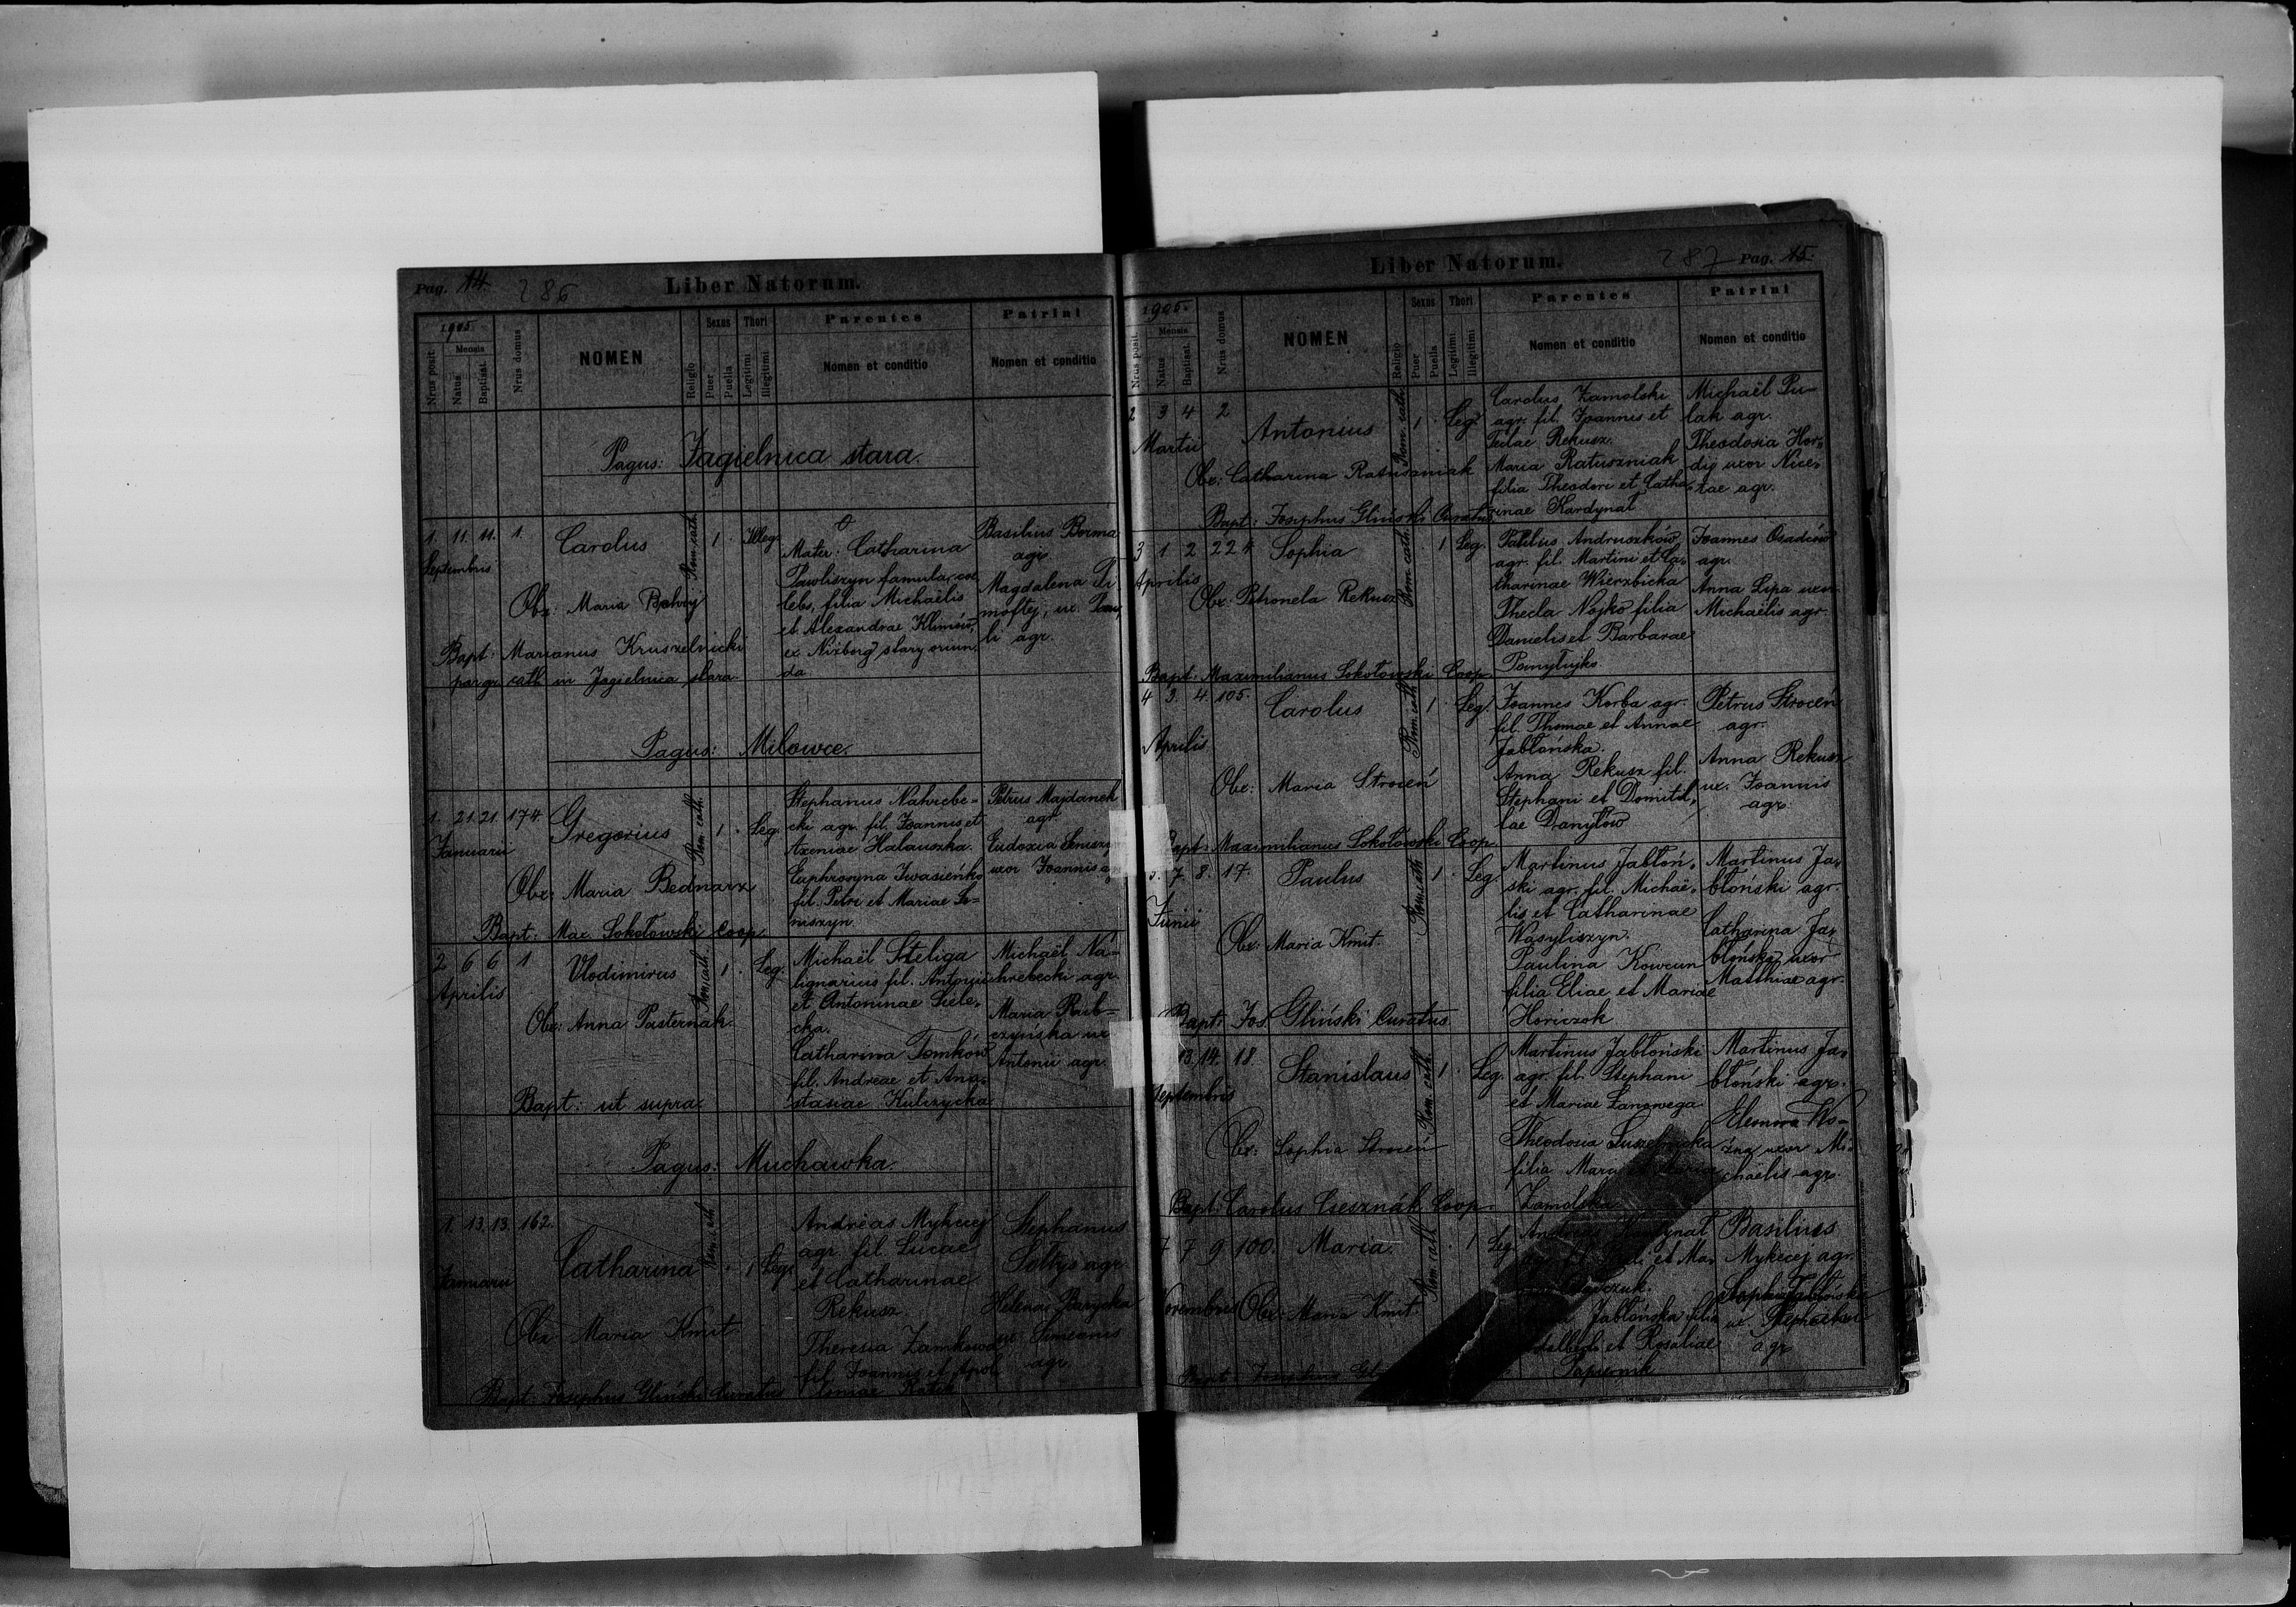 Pag. 14.
286
Liber Natorum.
1905.
Nrus posit.
Mensis
Natus
Baptisat.
Nrus domus
NOMEN
Religio
Sexus
Puer
Puella
Thori
Legitimi
Illegitimi
Parentes
Nomen et conditio
Patrini
Nomen et conditio
Pagus: Jagielnica stara.
1. 11. 11. 1.
Septembris
Carolus
Rom. cath.
1
Illeg.
Obx: Maria
Bapt: Marianus Kruszelnicki
par gr. cath. in Jagielnica stara.
Mater: Catharina
Pawliszyn famula, coe
lebs, filia Michaëlis
et Alexandrae Klimów,
ex Niżborg stary oriun,
da
Basilius Borma
agr.
Magdalena Ti
moftej, ux. Pau,
li agr.
Pagus: Milowce.
1. 21. 21. 174
Januarii
Gregorius
Rom. cath.
1
Leg.
Obx: Maria Bednarz
Bapt: Max. Sokołowski Coop.
Stephanus Nahrebe=
cki agr. fil. Joannis et
Axeniae Halauszka.
Euphrosyna Iwasieńko
fil. Petri et Mariae Se=
niszyn.
Petrus Majdanek
agr.
Eudoxia Seniszyn
uxor Joannis agr.
2 6 6 1
Aprilis
Vlodimirus
Rom. cath.
1
Leg.
Obx: Anna Pasternak
Bapt: ut supra.
Michaël Steliga
lignarius fil. Antonii
et Antoninae Siele,
cka.
Catharina Tomków
fil. Andreae et Ana,
stasiae Kulczycka
Michaël Na=
hrebecki agr.
Maria Rub=
czyńska ux
Antonii agr.
Pagus: Muchawka.
1. 13. 13. 162.
Januarii
Catharina
Rom. cath.
1
Leg.
Obx Maria Kmit
Bapt: Josephus Gliński Curatus
Andreas Mykicej
agr. fil. Lucae
et Catharinae
Rekusz
Theresia Zamkowa
fil. Joannis et Apol
loniae
Stephanus
Sołtys agr.
Helena Baryska
ux. Simeonis
agr.
287 Pag. 15.
Liber Natorum.
1905.
Nrus posit.
Mensis
Natus
Baptisat.
Nrus domus
NOMEN
Religio
Sexus
Puer
Puella
Thori
Legitimi
Illegitimi
Parentes
Nomen et conditio
Patrini
Nomen et conditio
2 3 4 2
Martii
Antonius
Rom. cath.
1
Leg.
Obx: Catharina Ratuszniak
Bapt: Josephus Gliński Curatus
Carolus Zamolski
agr. fil. Joannis et
Teclae Rekusz.
Maria Ratuszniak
filia Theodori et Catha,
rinae Kardynał
Michaël Pu=
lak agr.
Theodosia Hor,
dij uxor Nice,
tae agr.
3 1 2 224
Aprilis
Sophia
Rom. cath.
1
Leg.
Obx: Petronela Rekusz
Bapt: Maximilianus Sokołowski Coop.
Paulus Andruszków
agr. fil. Martini et Ca,
tharinae Wierzbicka
Thecla Nojko filia
Danielis et Barbarae
Pomytujko
Joannes Osadców
agr.
Anna Lipa uxor
Michaëlis agr.
4 3. 4. 105.
Aprilis
Carolus
Rom. cath.
1
Leg.
Obx: Maria Stroceń
Bapt: Maximilianus Sokołowski Coop.
Joannes Korba agr.
fil. Thomae et Annae
Jabłońska.
Anna Rekusz fil.
Stephani et Domitil,
lae Danyłów
Petrus Stroceń
agr.
Anna Rekusz
ux. Joannis
agr.
5. 7. 8. 17.
Junii
Paulus
Rom. cath.
1
Leg.
Obx: Maria Kmit.
Bapt: Jos. Gliński Curatus
Martinus Jabłoń,
ski agr. fil. Michaë,
lis et Catharinae
Wasyliszyn.
Paulina Kowcun
filia Eliae et Mariae
Horiczok
Martinus Ja,
błoński agr.
Catharina Ja,
błońska uxor
Matthiae agr.
13. 14. 18.
Septembris
Stanislaus
Rom. cath.
1
Leg.
Obx: Sophia Stroceń
Bapt: Carolus Cieszńak Coop.
Martinus Jabłoński
agr. fil. Stephani
et Mariae Łanowega
Theodosia
filia
Zamolska
Martinus Ja,
błoński agr.
Eleonora Wo=
źna uxor Mi,
chaëlis agr.
7 7 9 100.
Novembris
Maria.
Rom. cath.
1
Leg.
Obx: Maria Kmit.
Bapt: Josephus
Andreas Kardynał
et Mar
Jabłońska filia
Adalberti et Rosaliae
Papiernik
Basilius
Mykicej agr.
Sophia Jabłońska
ux. Stephani
agr